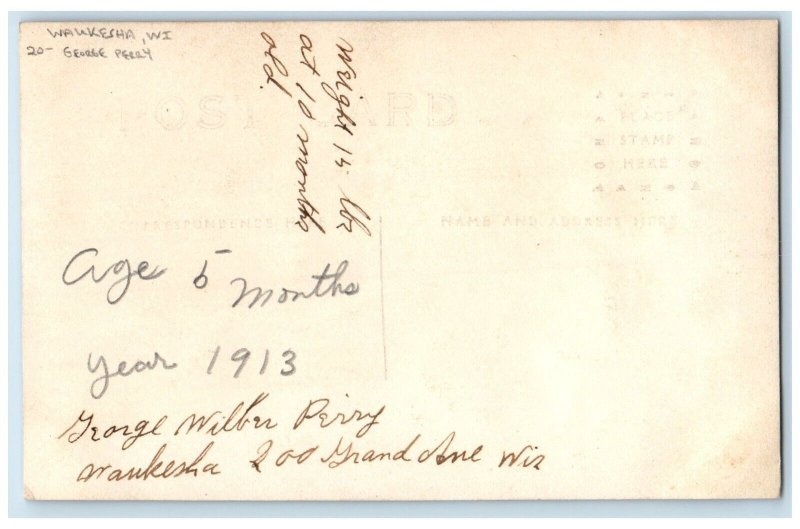 WAUKESHA, WI
20- GEORGE PERRY
Weight 15 lbs
at 10 months
old.
POST CARD
PLACE
STAMP
HERE
CORRESPONDENCE HERE
NAME AND ADDRESS HERE
Age 5 Months
Year 1913
George Wilber Perry
Waukesha 200 Grand Ave Wis